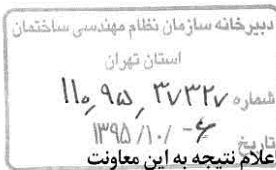 دبیرخانه سازمان نظام مهندسی ساختمان
استان تهران
شماره ۱۱۰,۹۵,۳۷۳۲۷
تاریخ ۱۳۹۵/۱۰/-۶
علام نتیجه به این معاونت